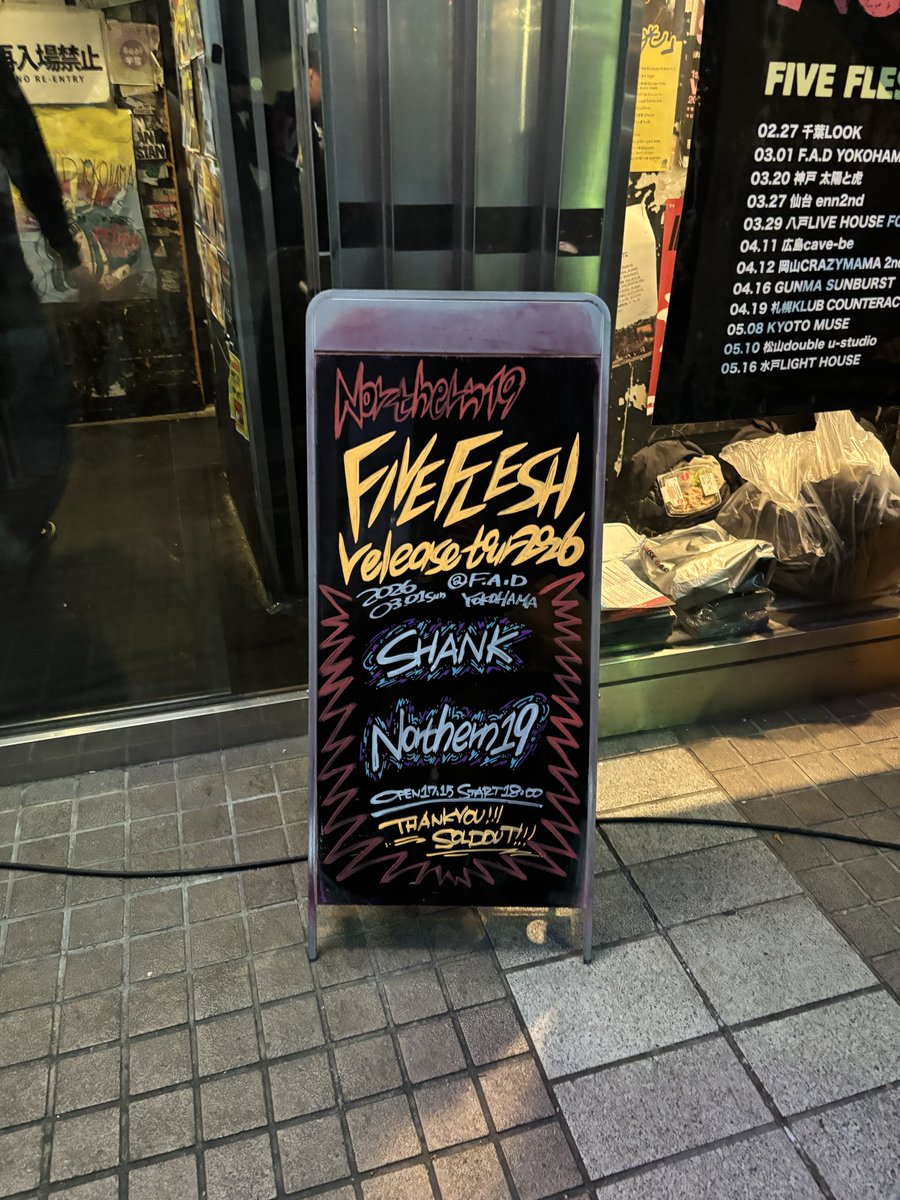 再入場禁止
NO RE-ENTRY
Northern19
FIVE FLESH
release tour 2026
2026
03.01 sun
@F.A.D
YOKOHAMA
SHANK
Northern19
OPEN 17:15 START 18:00
THANK YOU!!!
SOLDOUT!!!
FIVE FLES
02.27 千葉LOOK
03.01 F.A.D YOKOHAMA
03.20 神戸 太陽と虎
03.27 仙台 enn2nd
03.29 八戸LIVE HOUSE FO
04.11 広島cave-be
04.12 岡山CRAZYMAMA 2nd
04.16 GUNMA SUNBURST
04.19 札幌KLUB COUNTERAC
05.08 KYOTO MUSE
05.10 松山double u-studio
05.16 水戸LIGHT HOUSE